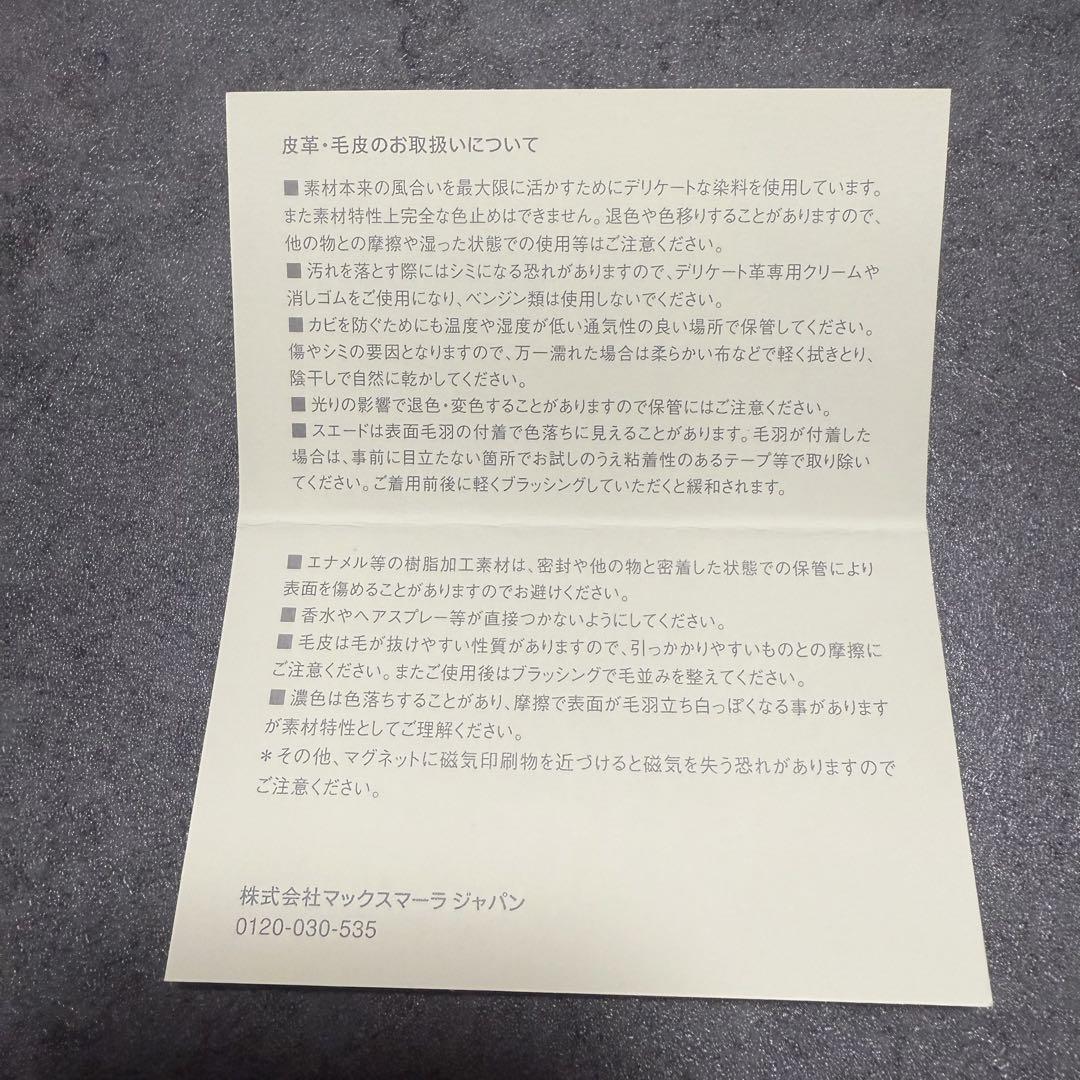 皮革・毛皮のお取扱いについて
■ 素材本来の風合いを最大限に活かすためにデリケートな染料を使用しています。
また素材特性上完全な色止めはできません。退色や色移りすることがありますので、
他の物との摩擦や湿った状態での使用等はご注意ください。
■ 汚れを落とす際にはシミになる恐れがありますので、デリケート革専用クリームや
消しゴムをご使用になり、ベンジン類は使用しないでください。
■ カビを防ぐためにも温度や湿度が低い通気性の良い場所で保管してください。
傷やシミの要因となりますので、万一濡れた場合は柔らかい布などで軽く拭きとり、
陰干しで自然に乾かしてください。
■ 光りの影響で退色・変色することがありますので保管にはご注意ください。
■ スエードは表面毛羽の付着で色落ちに見えることがあります。毛羽が付着した
場合は、事前に目立たない箇所でお試しのうえ粘着性のあるテープ等で取り除い
てください。ご着用前後に軽くブラッシングしていただくと緩和されます。
■ エナメル等の樹脂加工素材は、密封や他の物と密着した状態での保管により
表面を傷めることがありますのでお避けください。
■ 香水やヘアスプレー等が直接つかないようにしてください。
■ 毛皮は毛が抜けやすい性質がありますので、引っかかりやすいものとの摩擦に
ご注意ください。またご使用後はブラッシングで毛並みを整えてください。
■ 濃色は色落ちすることがあり、摩擦で表面が毛羽立ち白っぽくなる事があります
が素材特性としてご理解ください。
＊その他、マグネットに磁気印刷物を近づけると磁気を失う恐れがありますので
ご注意ください。
株式会社マックスマーラ ジャパン
0120-030-535